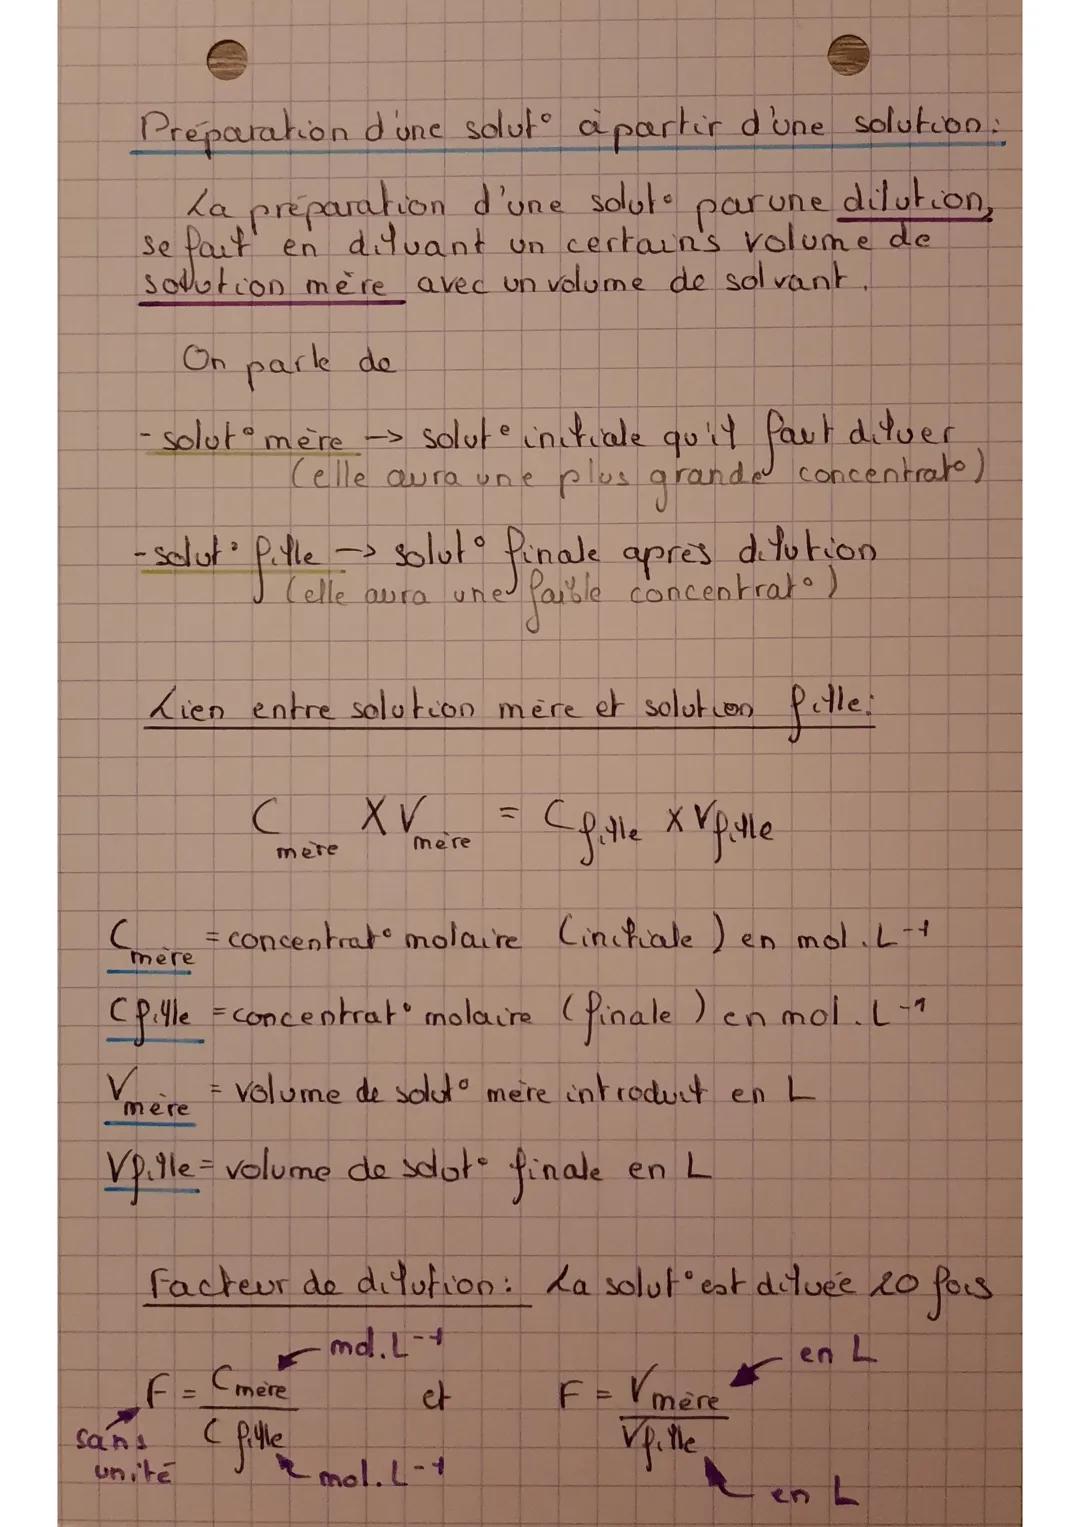 Préparation d'une solut° à partir d'une solution:
La préparation d'une solut° par une dilution,
se fait en diluant un certains volume de
solution mère avec un volume de solvant.
On parle de
- solut° mère -> solut° initiale qu'il faut diluer
(elle aura une plus grande concentrat°)
- solut° fille -> solut° finale après dilution
(elle aura une faible concentrat°)
Lien entre solution mère et solution fille:
C mère X V mère = C fille X V fille
C mère = concentrat° molaire (initiale) en mol.L-1
C fille = concentrat° molaire (finale) en mol.L-1
V mère = volume de solut° mère introduit en L
V fille = volume de solut° finale en L
Facteur de dilution: La solut° est diluée 20 fois
mol.L-1 en L
F = C mère et F = V mère
sans C fille V fille
unité mol.L-1 en L